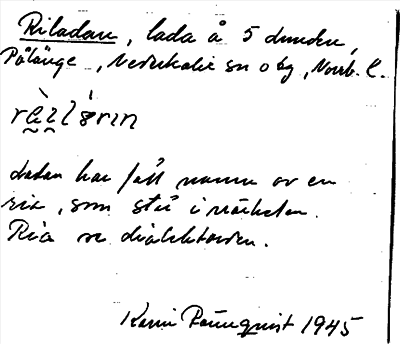 Riladan, lada å 5 dunden,
Pålänge, Nederkalix sn o bg, Norrb. l.
ladan har fått namn av en
ria, som stå i närheten.
Ria se dialektorden.
Karin Rönnquist 1945